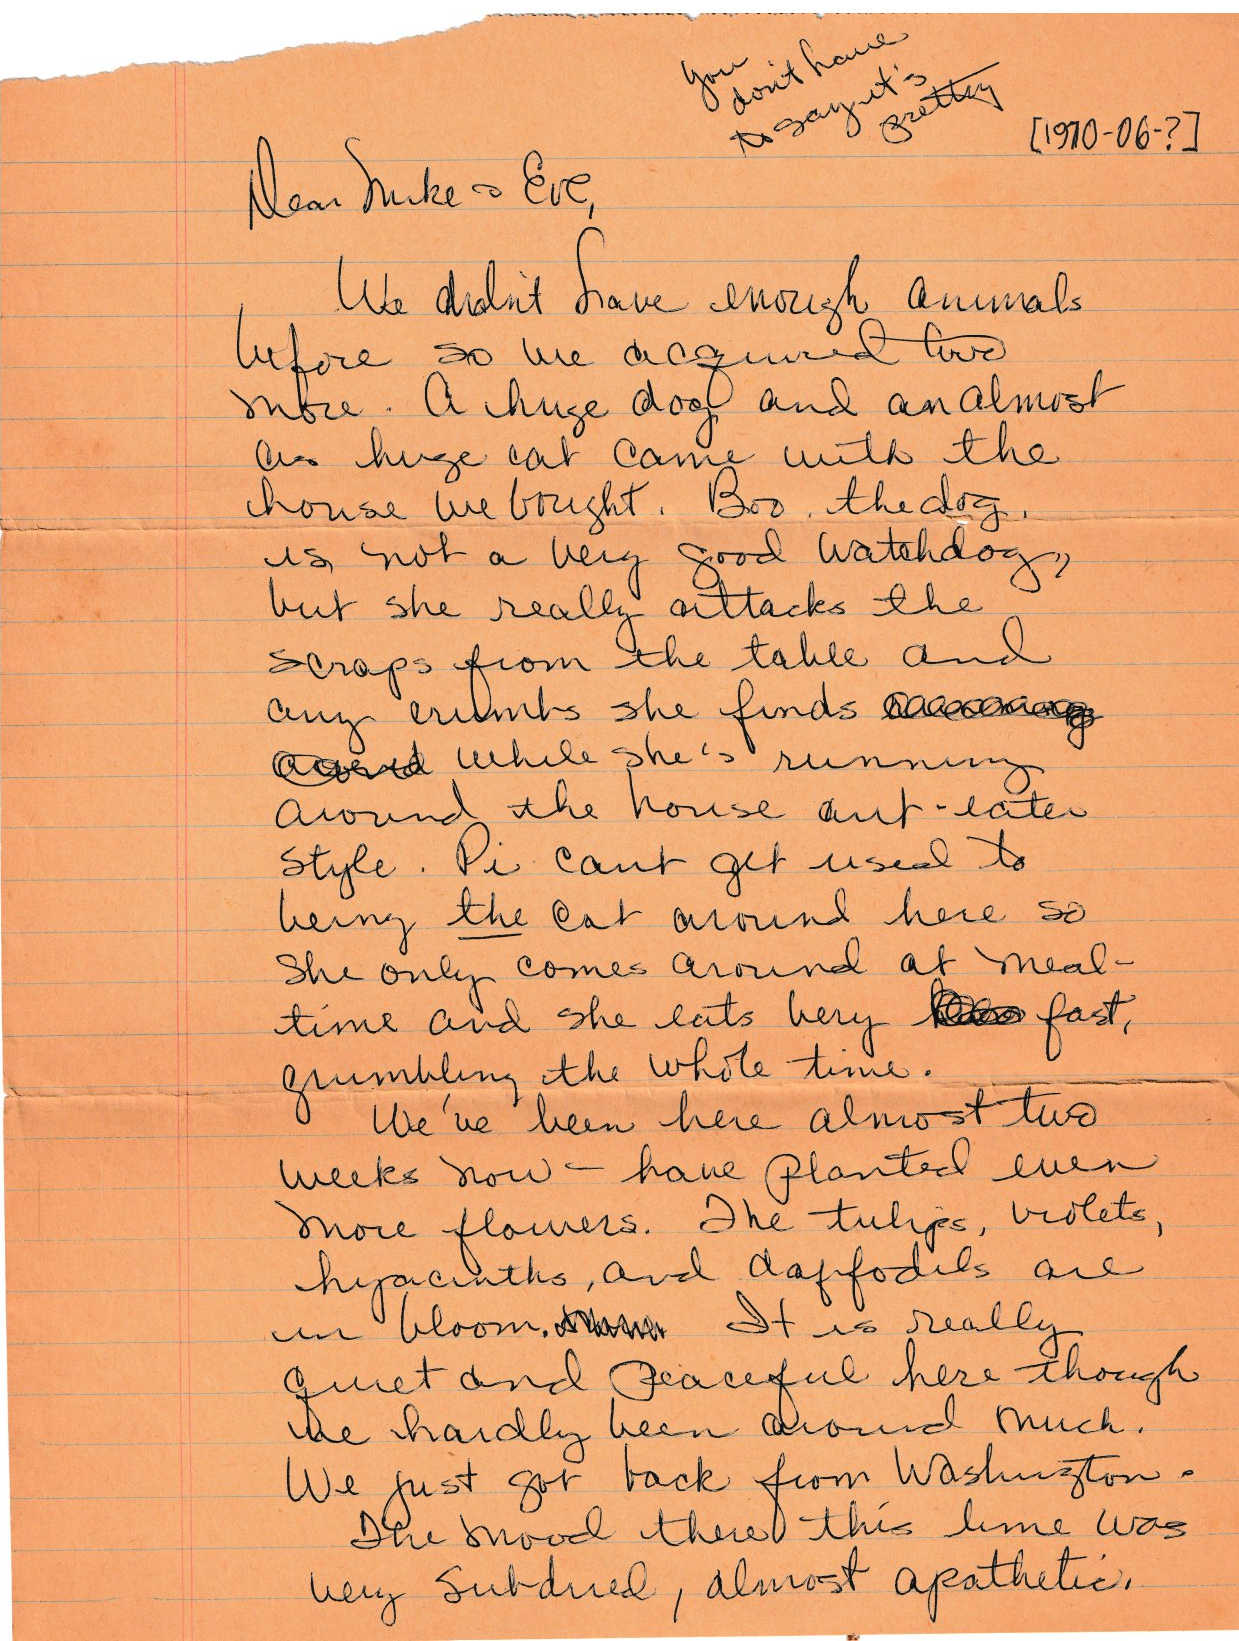 you
don't have
to say it's
pretty
[1970-06-?]
Dear Mike & Eve,
We didn't have enough animals
before so we acquired two
more. A huge dog and an almost
as huge cat came with the
house we bought. Boo, the dog,
is not a very good watchdog,
but she really attacks the
scraps from the table and
any crumbs she finds
while she's running
around the house ant-eater
style. Pi can't get used to
being the cat around here so
she only comes around at meal-
time and she eats very fast,
grumbling the whole time.
We've been here almost two
weeks now - have planted even
more flowers. The tulips, violets,
hyacinths, and daffodils are
in bloom. It is really
quiet and peaceful here though
we hardly been around much.
We just got back from Washington.
The mood there this time was
very subdued, almost apathetic.